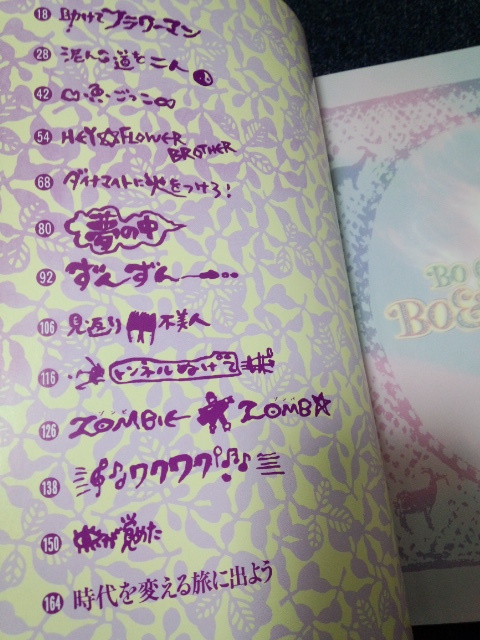 18 助けてフラワーマン
28 泥んこ道を二人
42 口・悪・ごっこ
54 HEY☆FLOWER BROTHER
68 ダイナマイトに火をつけろ!
80 夢の中
92 ずんずん
106 見返り不美人
116 トンネルぬけて
126 ZOMBIE ZOMBO
ゾンビ ゾンボ
138 ワクワク
150 が覚めた
164 時代を変える旅に出よう
BO
BO&